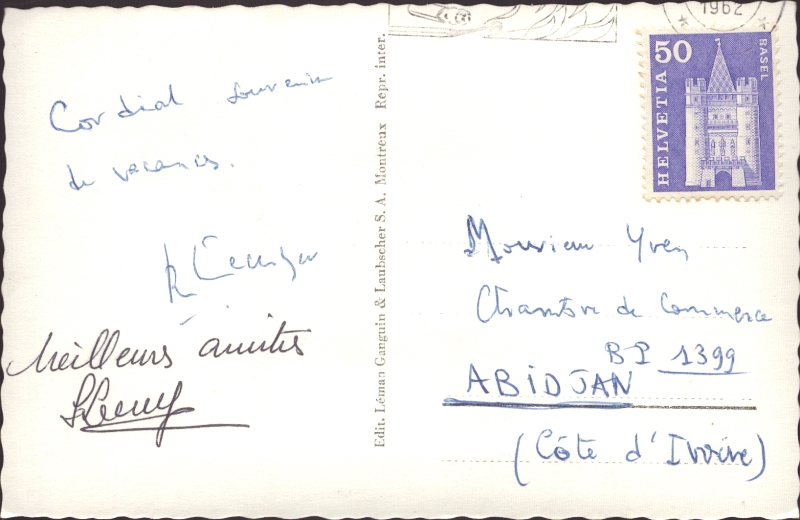 Cordial souvenir
de vacances.
Meilleurs amitiés
Edit. Léman Ganguin & Laubscher S. A. Montreux Repr. inter.
1962
50
HELVETIA
BASEL
Monsieur Yven
Chambre de Commerce
BP 1399
ABIDJAN
(Côte d'Ivoire)